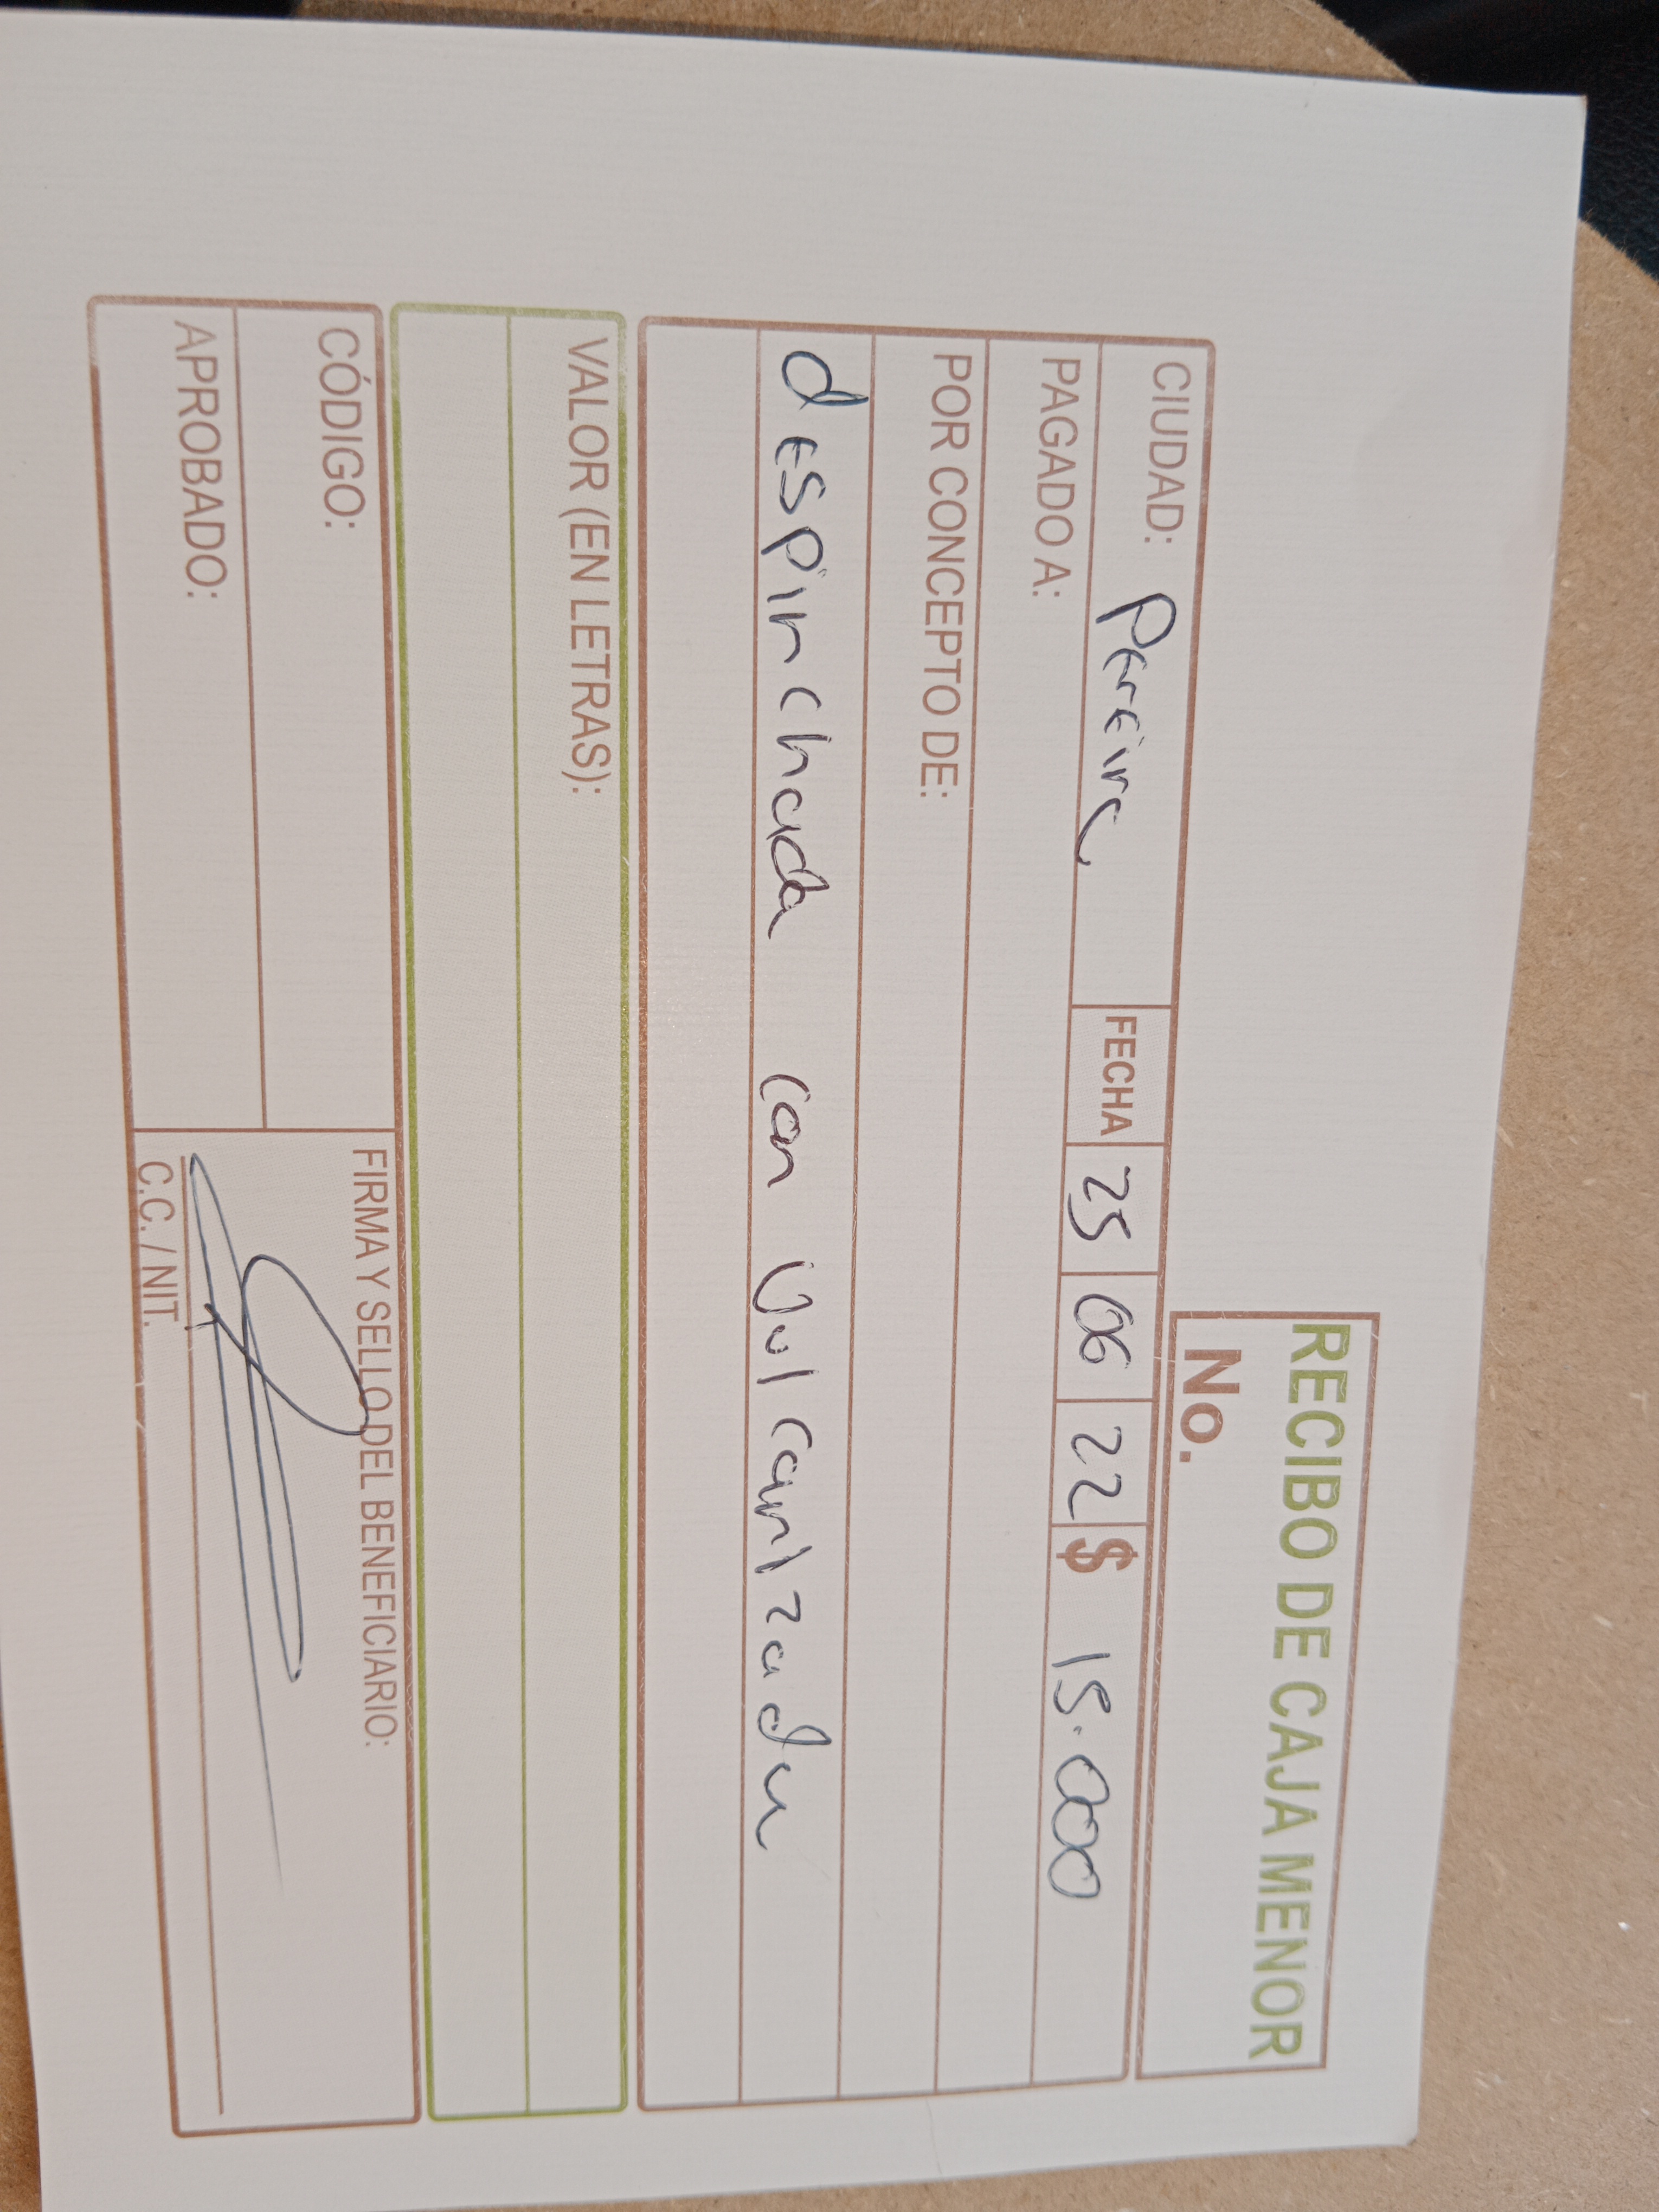 RECIBO DE CAJA MENOR
No.
CIUDAD: Pereira FECHA 25 06 22 $ 15.000
PAGADO A:
POR CONCEPTO DE:
despinchada con Vulcanizada
VALOR (EN LETRAS):
CÓDIGO:
FIRMA Y SELLO DEL BENEFICIARIO:
APROBADO:
C.C. / NIT.